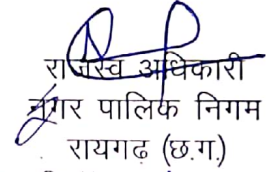 राजस्व अधिकारी
नगर पालिक निगम
रायगढ़ (छ.ग.)